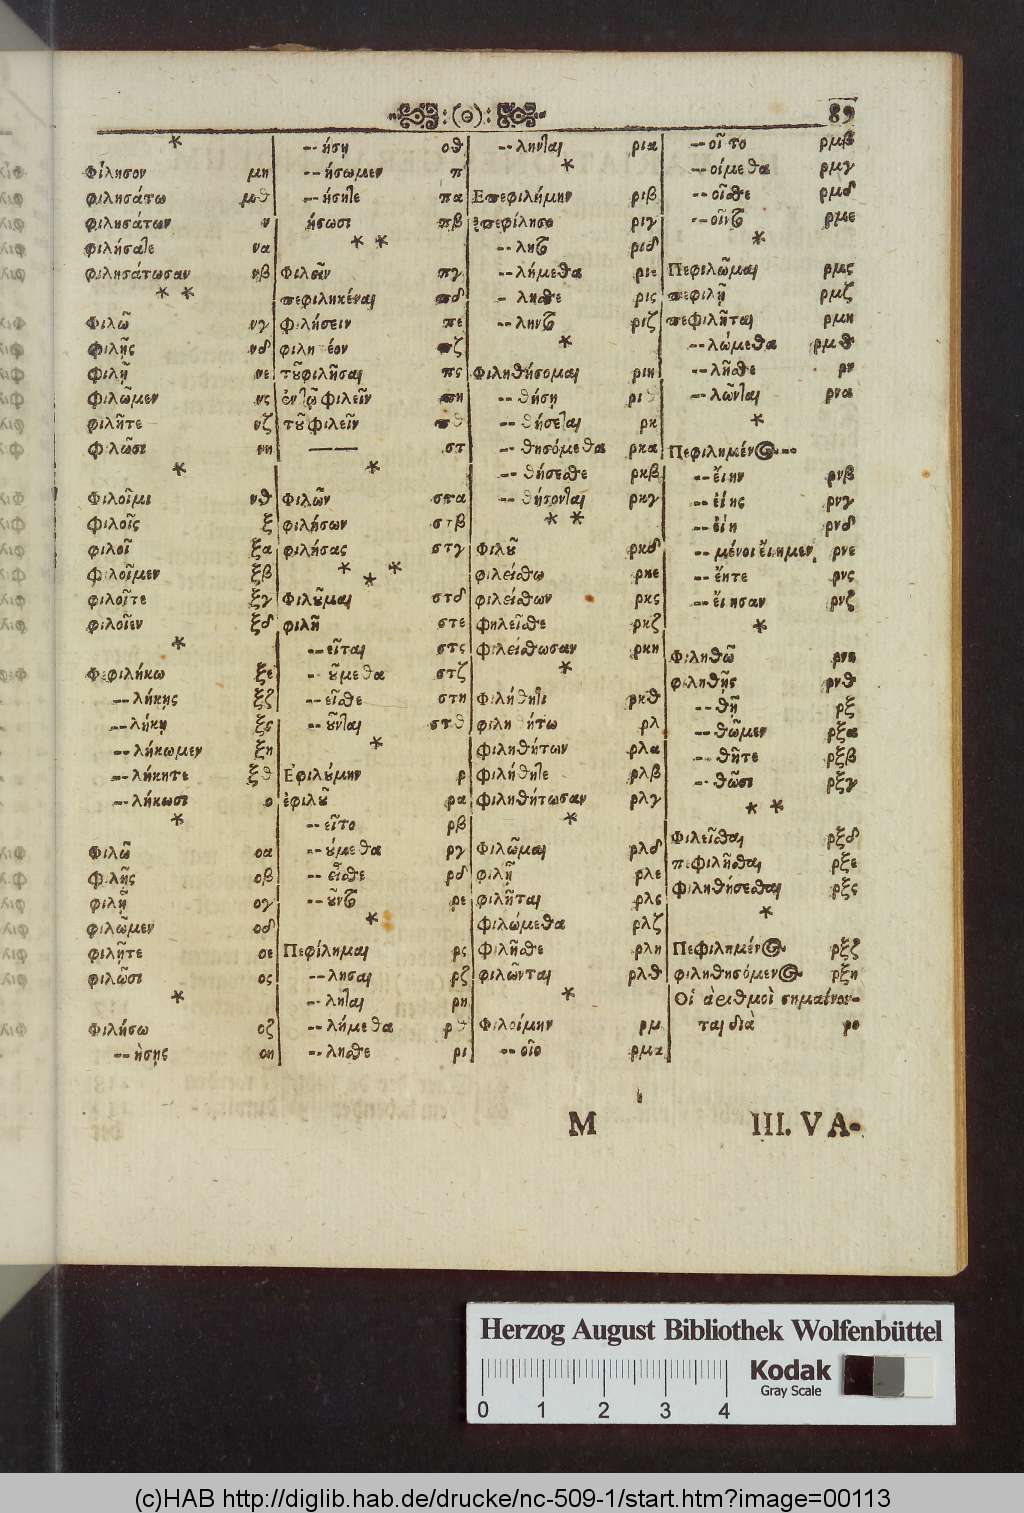 89
*
Φίλησον μη
φιλησάτω μθ
φιλησάτων ν
φιλήσατε να
φιλησάτωσαν νβ
* *
Φιλῶ νγ
φιλῇς νδ
φιλῇ νε
φιλῶμεν νς
φιλῆτε νζ
φιλῶσι νη
*
Φιλοῖμι νθ
φιλοῖς ξ
φιλοῖ ξα
φιλοῖμεν ξβ
φιλοῖτε ξγ
φιλοῖεν ξδ
*
Πεφιλήκω ξε
--λήκῃς ξζ
--λήκῃ ξς
--λήκωμεν ξη
--λήκητε ξθ
--λήκωσι ο
*
Φιλῶ οα
φιλῇς οβ
φιλῇ ογ
φιλῶμεν οδ
φιλῆτε οε
φιλῶσι ος
*
Φιλήσω οζ
--ήσῃς οη
--ήσῃ οθ
--ήσωμεν π
--ήσητε πα
ήσωσι πβ
* *
Φιλεῖν πγ
πεφιληκέναι πδ
Φιλήσειν πε
φιλητέον πζ
τȣ͂ φιλῆσαι πς
ἐν τῷ φιλεῖν πη
τȣ͂ φιλεῖν πθ
—— στ
*
Φιλῶν στα
φιλήσων στβ
φιλήσας στγ
* * *
Φιλȣ͂μαι στδ
φιλῇ στε
--εῖται στς
--ȣ́μεθα στζ
--εῖσθε στη
--ȣ͂νται στθ
*
Ἐφιλȣ́μην ρ
ἐφιλȣ͂ ρα
--εῖτο ρβ
--ȣ́μεθα ργ
--εῖσθε ρδ
--ȣ͂ντο ρε
*
Πεφίλημαι ρς
--λησαι ρζ
--ληται ρη
--λήμεθα ρθ
--λησθε ρι
--ληνται ρια
*
Επεφιλήμην ριβ
ἐπεφίλησο ριγ
--λητο ριδ
--λήμεθα ριε
--λησθε ρις
--ληντο ριζ
*
Φιληθήσομαι ριη
--θήσῃ ριθ
--θήσεται ρκ
--θησόμεθα ρκα
--θήσεσθε ρκβ
--θήσονται ρκγ
* *
Φιλȣ͂ ρκδ
φιλείσθω ρκε
φιλείσθων ρκς
φηλεῖσθε ρκζ
φιλείσθωσαν ρκη
*
Φιλήθητι ρκθ
φιληθήτω ρλ
φιληθήτων ρλα
φιλήθητε ρλβ
φιληθήτωσαν ρλγ
*
Φιλῶμαι ρλδ
φιλῇ ρλε
φιλῆται ρλς
Φιλώμεθα ρλζ
Φιλῆσθε ρλη
φιλῶνται ρλθ
*
Φιλοίμην ρμ
--οῖο ρμα
--οῖτο ρμβ
--οίμεθα ρμγ
--οῖσθε ρμδ
--οῖντο ρμε
*
Πεφιλῶμαι ρμς
πεφιλῇ ρμζ
πεφιλῆται ρμη
--λώμεθα ρμθ
--λῆσθε ρν
--λῶνται ρνα
*
Πεφιλημένος--
--εἴην ρνβ
--εἴης ρνγ
--εἴη ρνδ
--μένοι εἴημεν ρνε
--εἴητε ρνς
--εἴησαν ρνζ
*
Φιληθῶ ρνη
φιληθῇς ρνθ
--θῇ ρξ
--θῶμεν ρξα
--θῆτε ρξβ
--θῶσι ρξγ
* *
Φιλεῖσθαι ρξδ
πεφιλῆσθαι ρξε
φιληθήσεσθαι ρξς
*
Πεφιλημένος ρξζ
φιληθησόμενος ρξη
Οἱ ἀριθμοὶ σημαίνον-
ται διὰ ρο
M III. VA-
Herzog August Bibliothek Wolfenbüttel
0 1 2 3 4
Kodak
Gray Scale
(c)HAB http://diglib.hab.de/drucke/nc-509-1/start.htm?image=00113